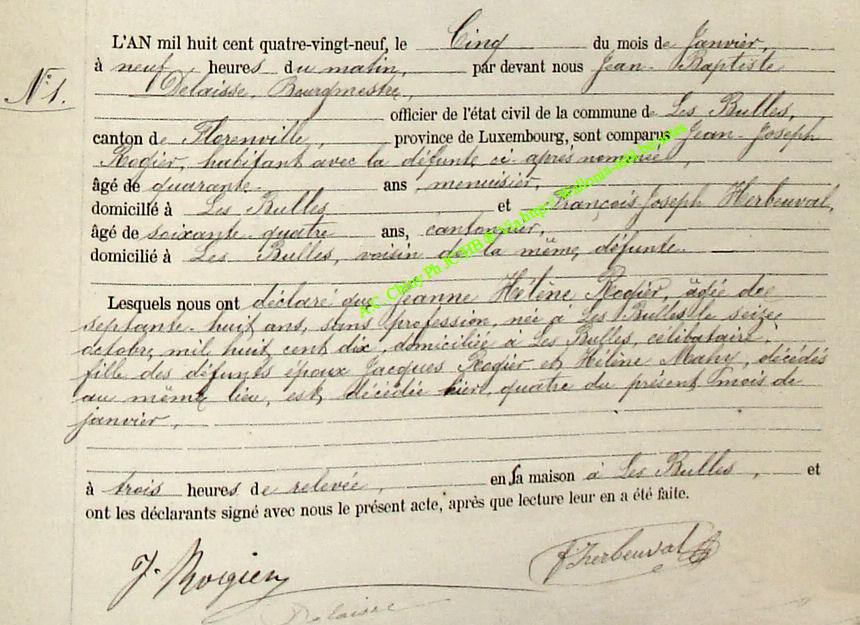 L'AN mil huit cent quatre-vingt-neuf, le Cinq du mois de Janvier,
à neuf heures du matin, par devant nous Jean-Baptiste
N° 1.
Delaisse, Bourgmestre,
officier de l'état civil de la commune de Les Bulles,
canton de Florenville, province de Luxembourg, sont comparus Jean-Joseph
Rogier, habitant avec la défunte ci-après nommée,
âgé de quarante ans, menuisier,
domicilié à Les Bulles et François Joseph Herbeuval,
âgé de soixante-quatre ans, cantonnier,
domicilié à Les Bulles, voisin de la même défunte.
Lesquels nous ont déclaré que Jeanne Hélène Rogier, âgée de
septante-huit ans, sans profession, née à Les Bulles le seize
octobre mil huit cent dix, domiciliée à Les Bulles, célibataire,
fille des défunts époux Jacques Rogier et Hélène Mahy, décédés
au même lieu, est décédée hier, quatre du présent mois de
janvier,
à trois heures de relevée, en sa maison à Les Bulles, et
ont les déclarants signé avec nous le présent acte, après que lecture leur en a été faite.
J. Rogier
F. Herbeuval
Delaisse
A.C. Chiny Ph JCHB &